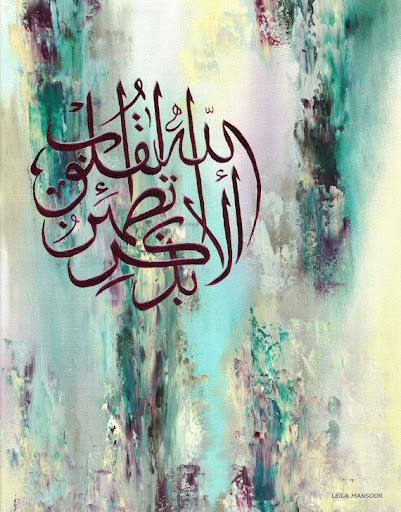 ألا بذكر الله تطمئن القلوب
LEILA MANSOOR